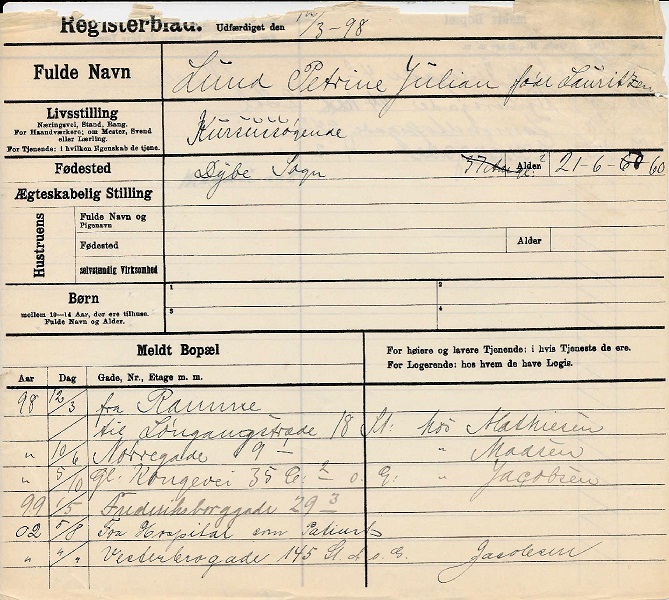 Registerblad. Udfærdiget den 12/3-98
Fulde Navn Lund Petrine Julian født Lauritzen
Livsstilling
Næringsvei, Stand, Rang.
For Haandværkere; om Mester, Svend
eller Lærling.
For Tjenende: i hvilken Egenskab de tjene.
Kursussøgende
Fødested Dybe Sogn Alder 21-6-60 60
Ægteskabelig Stilling
Hustruens
Fulde Navn og
Pigenavn
Fødested Alder
selvstændig Virksomhed
Børn
mellem 10—14 Aar, der ere tilhuse.
Fulde Navn og Alder.
1 2
3 4
Meldt Bopæl
For høiere og lavere Tjenende: i hvis Tjeneste de ere.
For Logerende: hos hvem de have Logis.
Aar Dag Gade, Nr., Etage m. m.
98 12/3 fra Ramme
til Løngangstræde 18 St: hos Mathiesen
" 10/6 Nørregade 9 — " Madsen
" 5/10 Gl. Kongevei 35 C: 2 o. G: " Jacobsen
99 1/5 Frederiksborggade 29 3
02 5/8 Fra Hospital som Patient
" "/" Vesterbrogade 145 St. o. G. Jacobsen